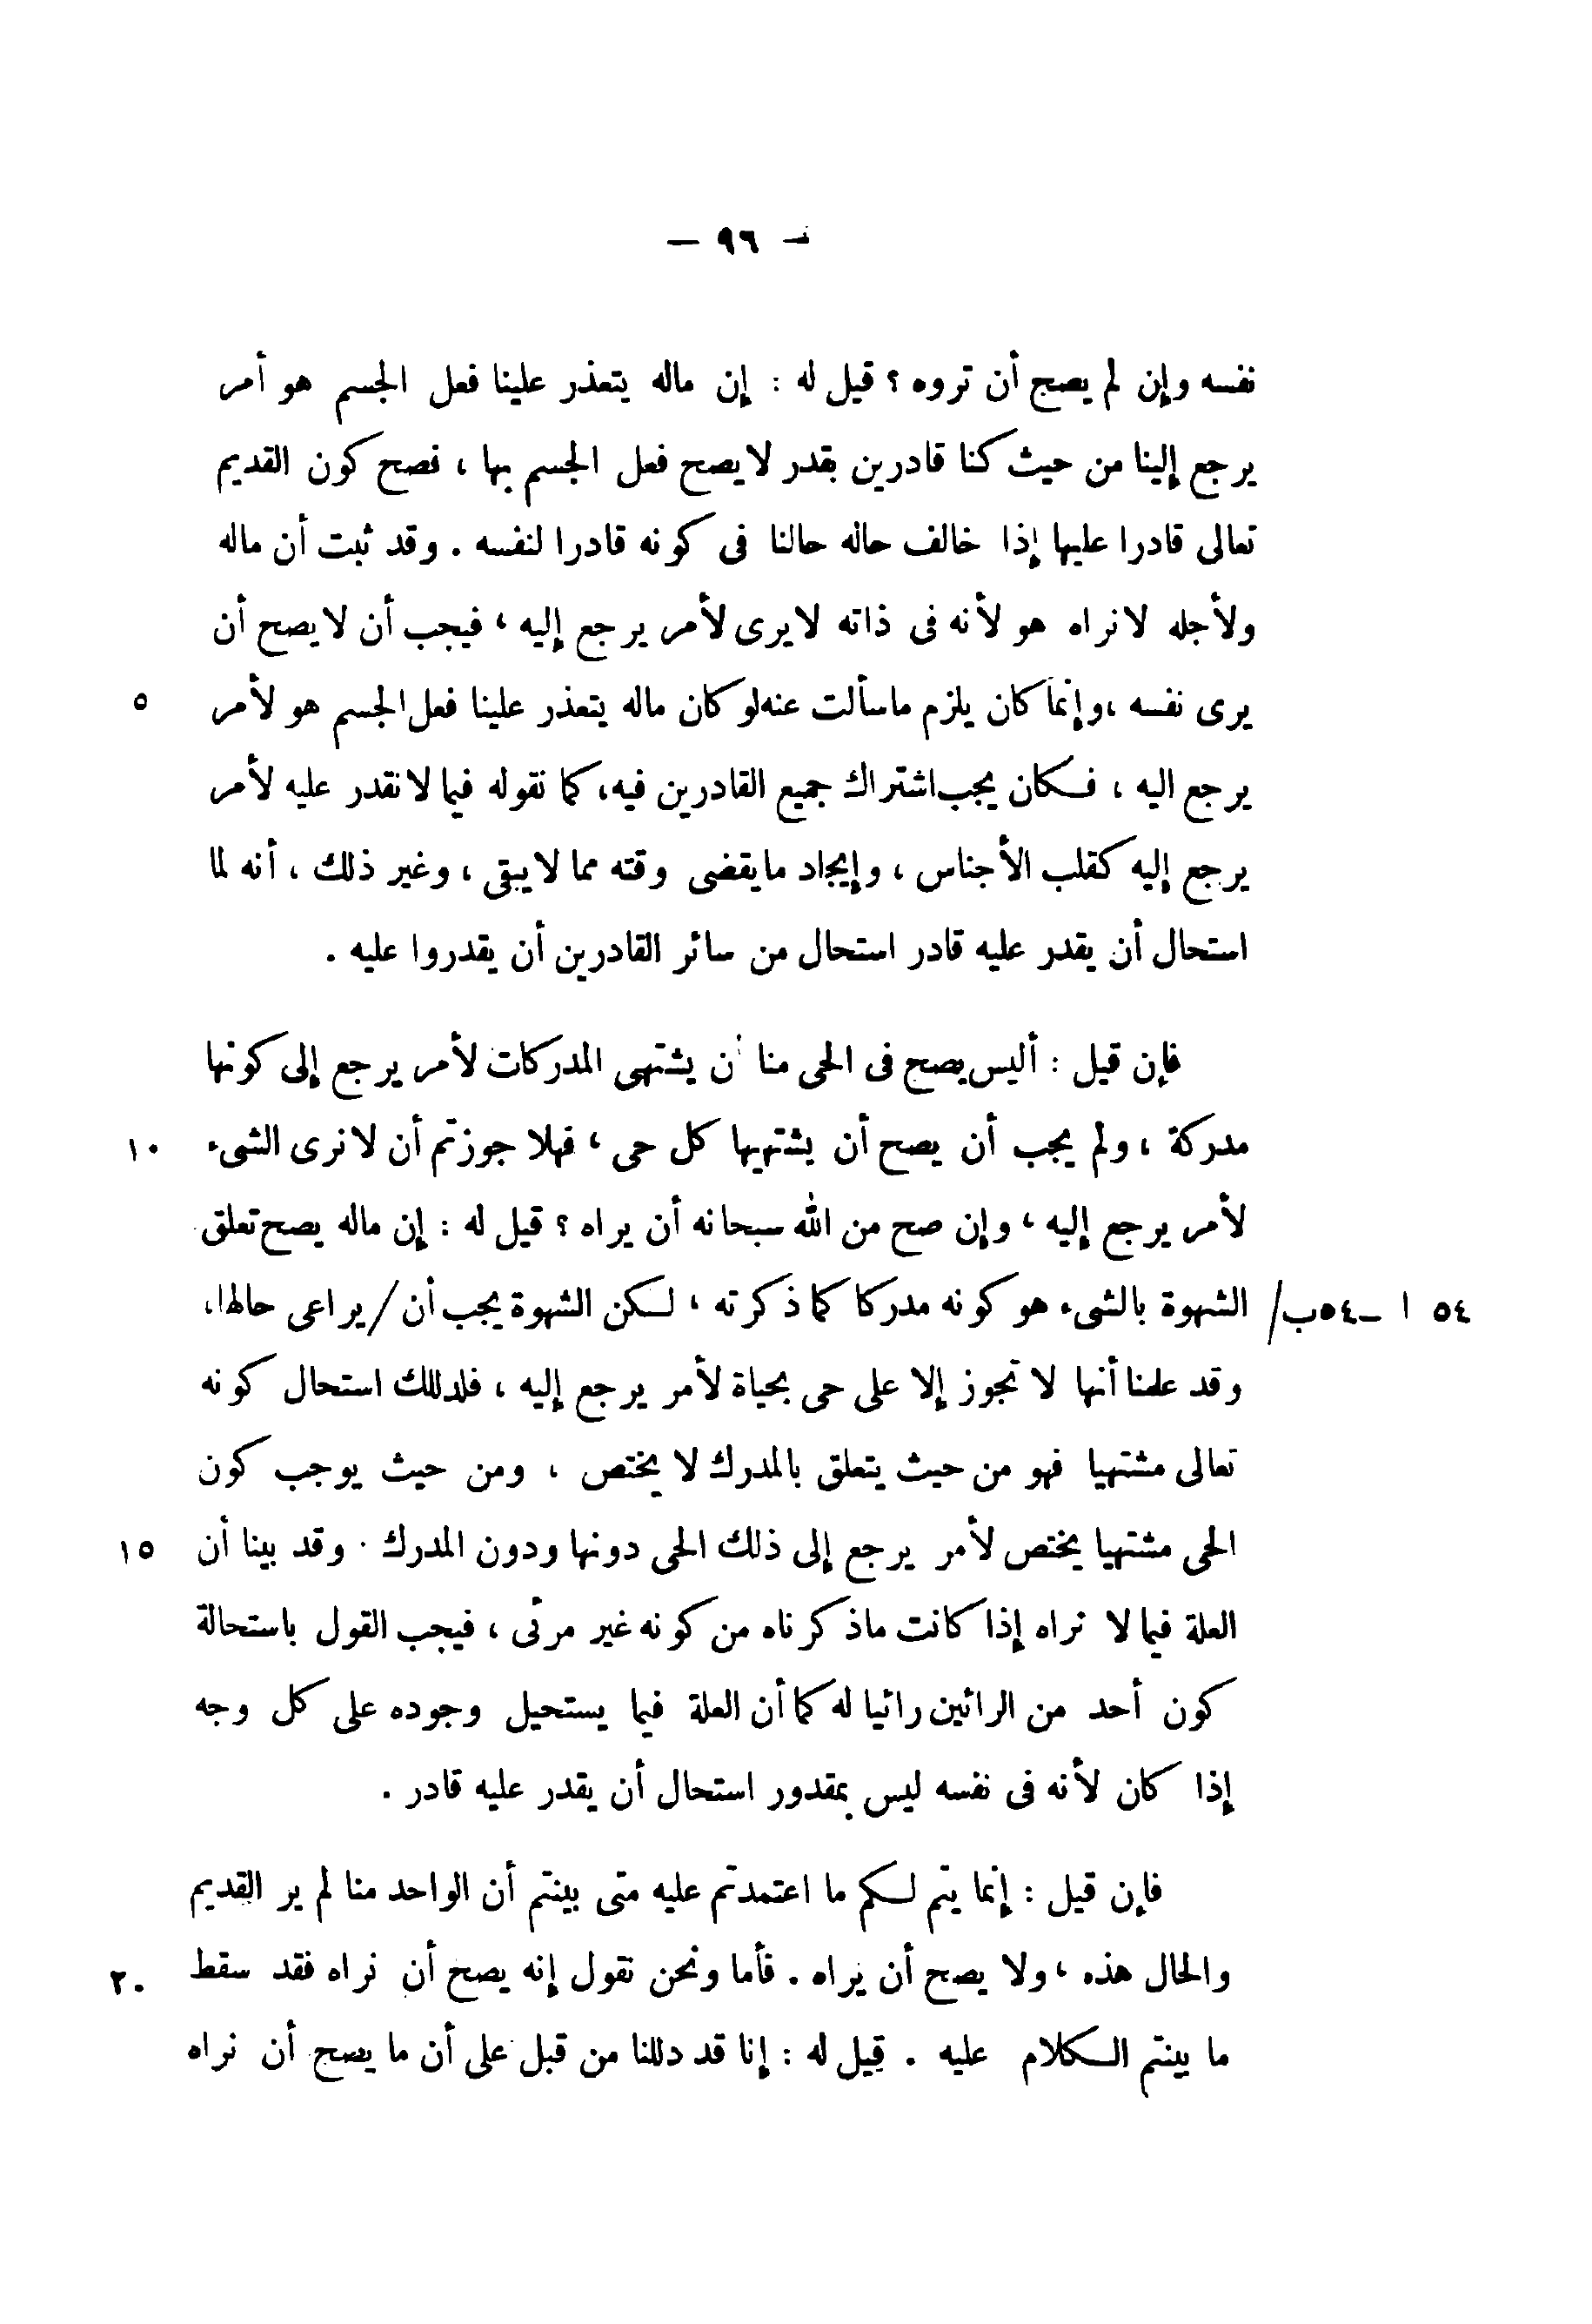 — ٩٦ —
نفسه وإن لم يصح أن تروه ؟ قيل له : إن ماله يتعذر علينا فعل الجسم هو أمر
يرجع إلينا من حيث كنا قادرين بقدر لا يصح فعل الجسم بها ، فصح كون القديم
تعالى قادرا عليها إذا خالف حاله حالنا فى كونه قادرا لنفسه . وقد ثبت أن ماله
ولأجله لا نراه هو لأنه فى ذاته لا يرى لأمر يرجع إليه ، فيجب أن لا يصح أن
يرى نفسه ، وإنما كان يلزم ما سألت عنه لو كان ماله يتعذر علينا فعل الجسم هو لأمر ٥
يرجع اليه ، فكان يجب اشتراك جميع القادرين فيه ، كما نقوله فيما لا نقدر عليه لأمر
يرجع إليه كقلب الأجناس ، وإيجاد ما يقضى وقته مما لا يبقى ، وغير ذلك ، أنه لما
استحال أن يقدر عليه قادر استحال من سائر القادرين أن يقدروا عليه .
فإن قيل : أليس يصح فى الحى منا أن يشتهى المدركات لأمر يرجع إلى كونها
مدركة ، ولم يجب أن يصح أن يشتهيها كل حى ، فهلا جوزتم أن لا نرى الشىء ١٠
لأمر يرجع إليه ، وإن صح من الله سبحانه أن يراه ؟ قيل له : إن ماله يصح تعلق
٥٤ ا - ٥٤ب/ الشهوة بالشىء هو كونه مدركا كما ذكرته ، لكن الشهوة يجب أن / يراعى حالها ،
وقد علمنا أنها لا تجوز إلا على حى بحياة لأمر يرجع إليه ، فلذلك استحال كونه
تعالى مشتهيا فهو من حيث يتعلق بالمدرك لا يختص ، ومن حيث يوجب كون
الحى مشتهيا يختص لأمر يرجع إلى ذلك الحى دونها ودون المدرك . وقد بينا أن ١٥
العلة فيما لا نراه إذا كانت ما ذكرناه من كونه غير مرئى ، فيجب القول باستحالة
كون أحد من الرائين رائيا له كما أن العلة فيما يستحيل وجوده على كل وجه
إذا كان لأنه فى نفسه ليس بمقدور استحال أن يقدر عليه قادر .
فإن قيل : إنما يتم لكم ما اعتمدتم عليه متى بينتم أن الواحد منا لم ير القديم
والحال هذه ، ولا يصح أن يراه . فأما ونحن نقول إنه يصح أن نراه فقد سقط ٢٠
ما بينتم الكلام عليه . قيل له : إنا قد دللنا من قبل على أن ما يصح أن نراه